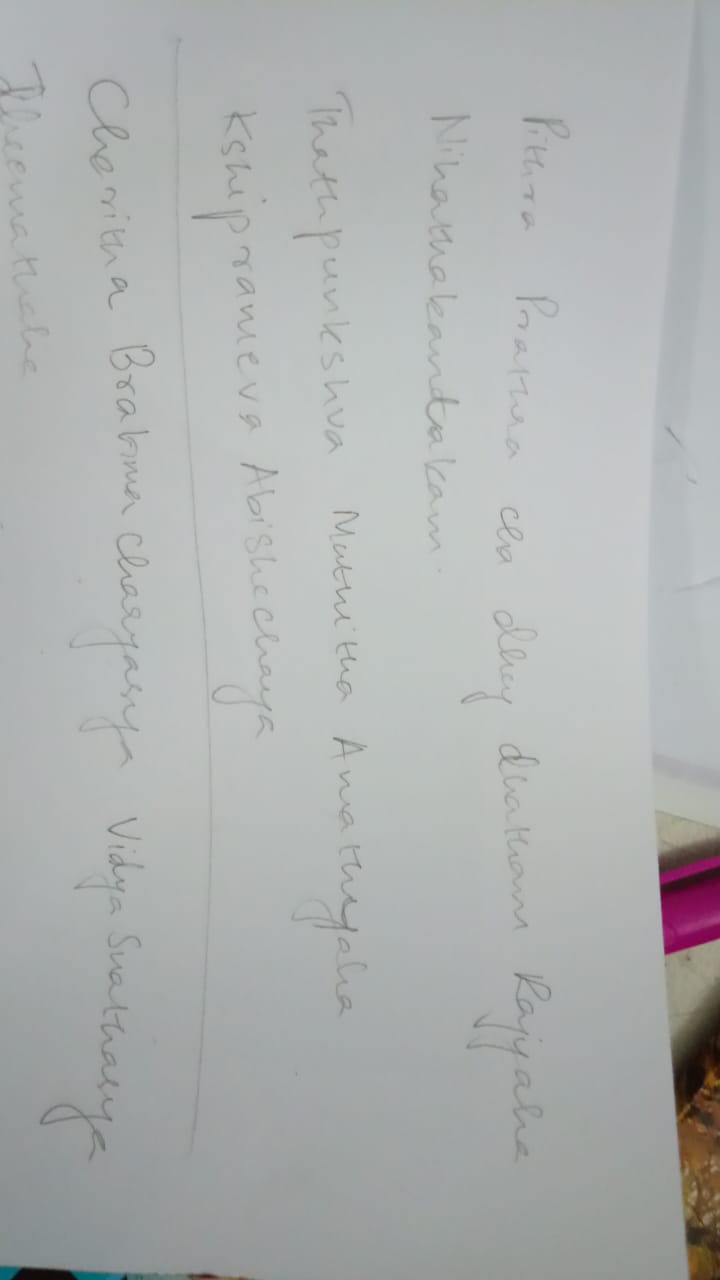 Pithra Prathra cha dhey dhatham Rajyaha
Nihathakantakam.
Thathpunkshva Muthitha Amathyaha
Kshiprameva Abishechaya
Charitha Brahma Charyasya Vidya Snathasya
Dheemathaha